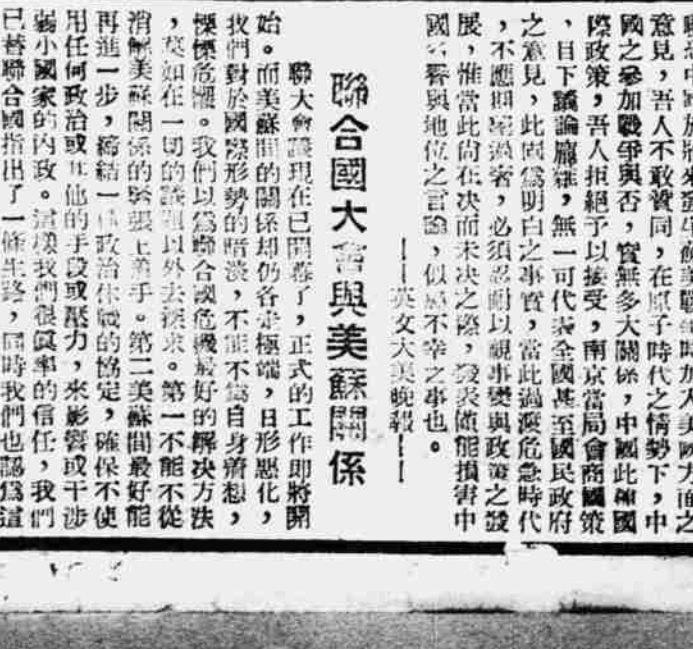 意見,吾人不敢贊同,在原子時代之情勢下,中
國之參加戰爭與否,實無多大關係,中國此種國
際政策,吾人拒絕予以接受,南京當局會商國策
,目下議論龐雜,無一可代表全國甚至國民政府
之意見,此固爲明白之事實,當此過渡危急時代
,不應,必須忍耐以觀事變與政策之發
展,惟當此尙在決而未決之際,發表做能損害中
國名譽與地位之言論,似爲不幸之事也。
聯合國大會與美蘇關係
——英文大美晚報——
聯大會議現在已開幕了,正式的工作卽將開
始。而美蘇間的關係却仍各走極端,日形惡化,
我們對於國際形勢的暗淡,不能不爲自身着想,
慄慄危懼。我們以爲聯合國危機最好的解決方法
,莫如在一切的議題以外去探求。第一不能不從
消解美蘇關係的緊張上着手。第二美蘇間最好能
再進一步,締結一件政治休戰的協定,確保不使
用任何政治或其他的手段或壓力,來影響或干涉
弱小國家的內政。這樣我們很真率的信任,我們
已替聯合國指出了一條生路,同時我們也認爲這